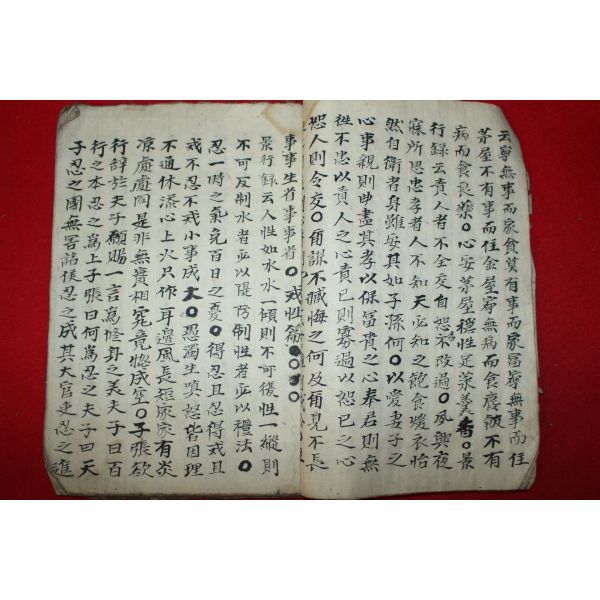 云寧無事而家貧莫有事而家冨寧無事而住
茅屋不有事而住金屋寧無病而食麁飯不有
病而食良藥〇心安茅屋穩性定菜羹香〇景
行録云責人者不全交自恕不改過〇夙興夜
寐所思忠孝者人不知天必知之飽食煖衣怡
然自衛者身雖安其如子孫何〇以愛妻子之
心事親則曲盡其孝以保冨貴之心奉君則無
徃不忠以責人之心責已則寡過以恕已之心
恕人則全交〇爾謀不臧悔之何及爾見不長
事事生省事事省〇戒性篇〇〇〇
景行録云人性如水水一傾則不可復性一縱則
不可反制水者必以堤防制性者必以禮法〇
忍一時之氣免百日之憂〇得忍且忍得戒且
戒不忍不戒小事成大〇愚濁生嗔怒皆因理
不通休添心上火只作耳邊風長短家家有炎
凉處處同是非無實相究竟㧾成空〇子張欲
行辞於夫子願賜一言爲修身之美夫子曰百
行之本忍之爲上子張曰何爲忍之夫子曰天
子忍之國無害諸侯忍之成其大官吏忍之進